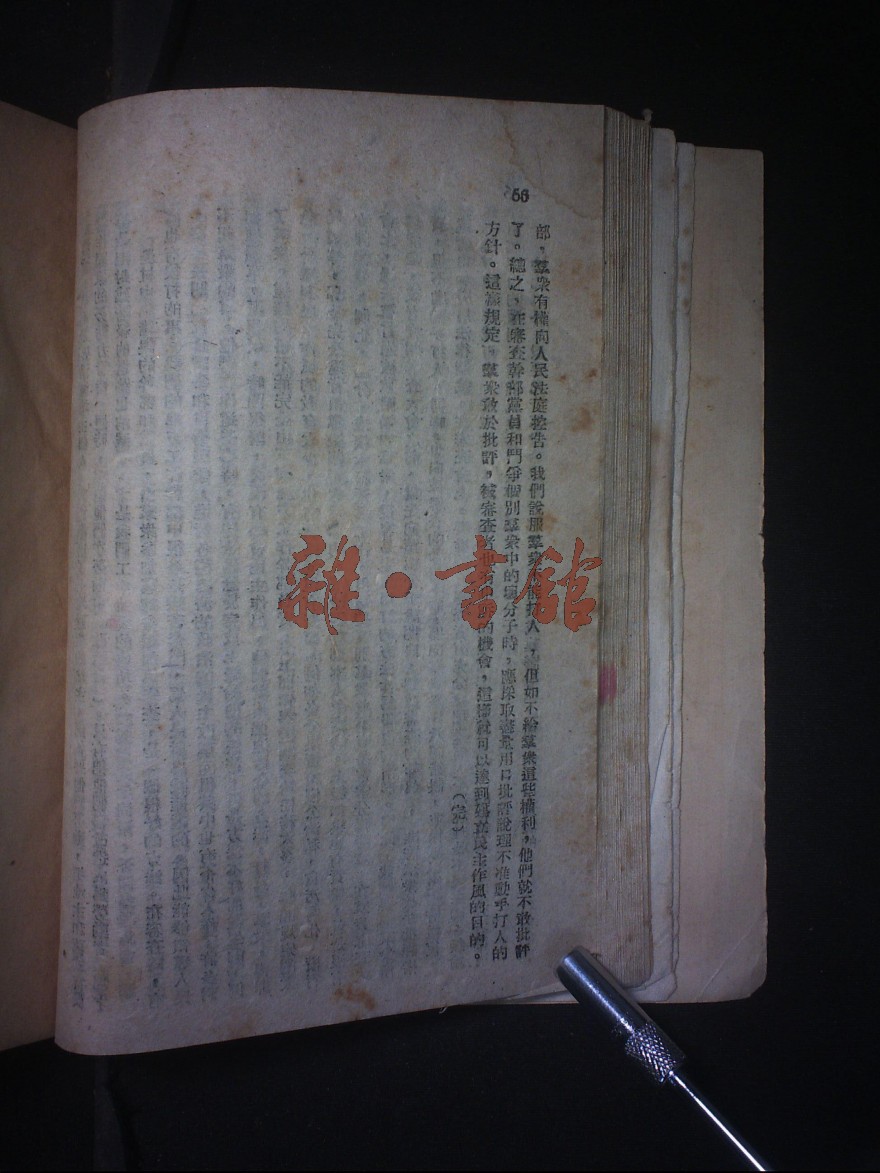 56
部，羣衆有權向人民法庭控告。我們說服羣衆不能打人，但如不給羣衆這些權利，他們就不敢批評
了。總之，在審查幹部黨員和鬥爭個別羣衆中的壞分子時，應採取儘量用口批評說理不准動手打人的
方針。這樣規定，羣衆敢於批評，被審查者也有的機會，這樣就可以達到建立民主作風的目的。
（完）
雜·書館